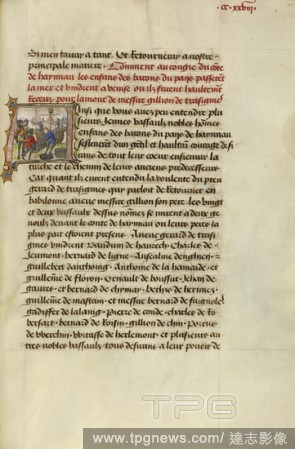 Si men tairay a tant Et Retourneray a nostre
principale matiere Comment au congie du côte
de haynnau les enfans des barons du pays passerēt
la mer et vindrent a venise ou ilz furent haultemēt
Receuz pour lamour de messire gillion de trasignies
Ainsi que vous avez peu entendre plu
sieurs Jennes vassaulx nobles hōmes
enfans des barons du pays de haynnau
et haultain courage desi
rans de tout leur coeur ensieuvir la
trache et le chemin de leurs anciens predecesseurs
Car quant ilz eurent entendu la voulente du preu
gerard de trasignies quy parloit de Retourner en
babilonne aveuc messire gillion son pere les vingt
et deux vassaulx dessus nōmez se mirent a deux ge
noulx devant le conte de haynnau ou leurs peres la
plus part estoient presens Aveuc gerard de tras
ignies vindrent Bauduin de havrech Charles de
Jeumont bernard de ligne Anscalme denghien
guillebert danthoing Anthoine de la hamaide et
guillēme de floyon Ernault de boussut Jehan de
gavres et bernard de chymay
guillēme de mastain et messire bernard de faignoles
de lalaing Pierre de conde charles de Ro
bersart bernard de Roisin gillion de chin
de werchin de herlemont et plusieurs au
tres nobles vassaulx tous desirans a leur povoir de
TPG
www.tpgnews.com / 達志影像